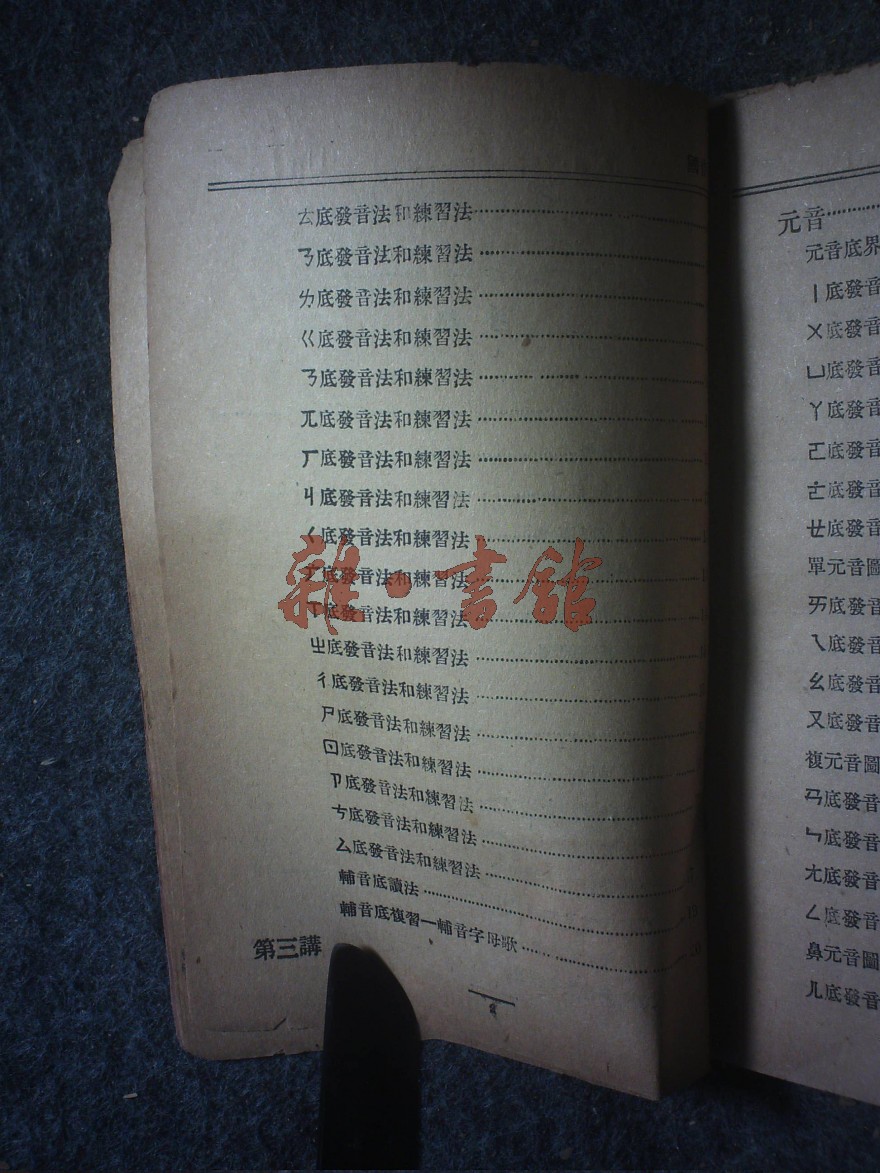 ㄊ底發音法和練習法
ㄋ底發音法和練習法
ㄌ底發音法和練習法
ㄍ底發音法和練習法
ㄎ底發音法和練習法
ㄫ底發音法和練習法
ㄏ底發音法和練習法
ㄐ底發音法和練習法
ㄑ底發音法和練習法
底發音法和練習法
ㄒ底發音法和練習法
ㄓ底發音法和練習法
ㄔ底發音法和練習法
ㄕ底發音法和練習法
ㄖ底發音法和練習法
ㄗ底發音法和練習法
ㄘ底發音法和練習法
ㄙ底發音法和練習法
輔音底讀法
輔音底複習—輔音字母歌
第三講
雜·書館
元音
元音底界
ㄧ底發音
ㄨ底發音
ㄩ底發音
ㄚ底發音
ㄛ底發音
ㄜ底發音
ㄝ底發音
單元音圖
ㄞ底發音
ㄟ底發音
ㄠ底發音
ㄡ底發音
複元音圖
ㄢ底發音
ㄣ底發音
ㄤ底發音
ㄥ底發音
鼻元音圖
ㄦ底發音